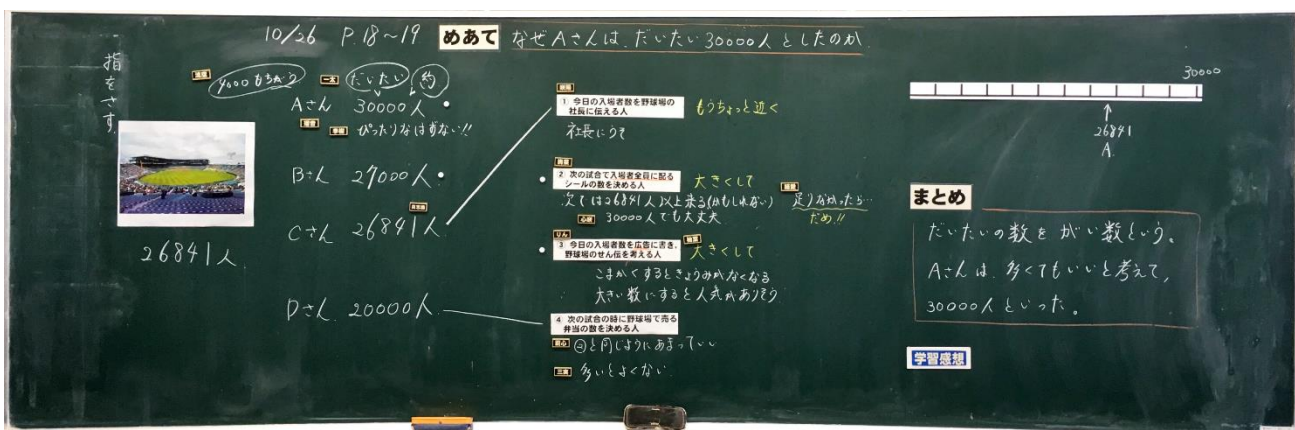 10/26 P.18～19 めあて なぜAさんは、だいたい30000人としたのか
指をさす
26841人
4000もちがう
だいたい 約
Aさん 30000人
ぴったりなはずない!!
Bさん 27000人
Cさん 26841人
Dさん 20000人
① 今日の入場者数を野球場の
社長に伝える人
もうちょっと近く
2 次の試合で入場者全員に配る
シールの数を決める人
大きくして
30000人でも大丈夫
足りなかったら…
だめ!!
3 今日の入場者数を広告に書き、
野球場のせん伝を考える人
大きくして
こまかくするときょうみがなくなる
大きい数にすると人気がありそう
4 次の試合の時に野球場で売る
弁当の数を決める人
多いとよくない
30000
26841
A
まとめ
だいたいの数をがい数という。
Aさんは、多くてもいいと考えて、
30000人といった。
学習感想